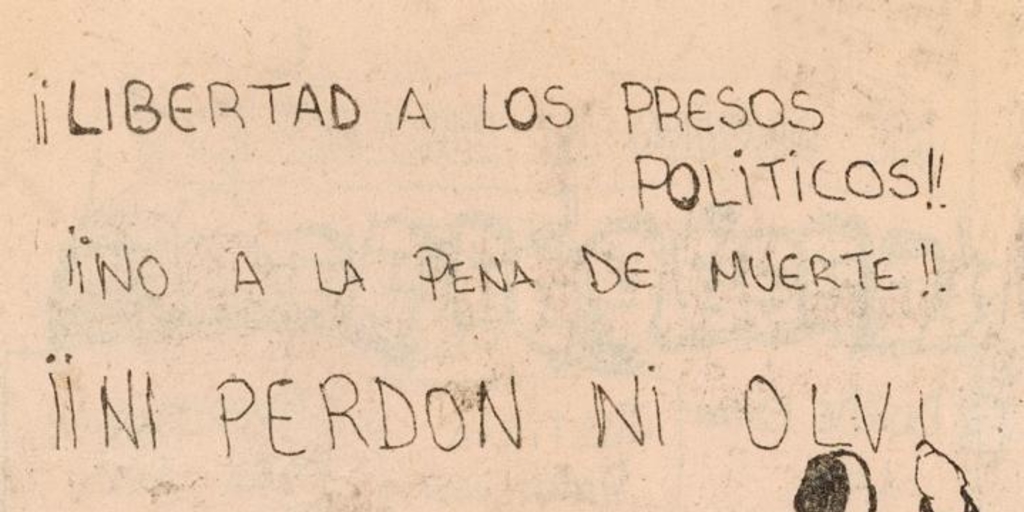 ¡¡LIBERTAD A LOS PRESOS
POLiTiCOS!!
¡¡NO A LA PENA DE MUERTE!!
¡¡NI PERDON Ni OLVI